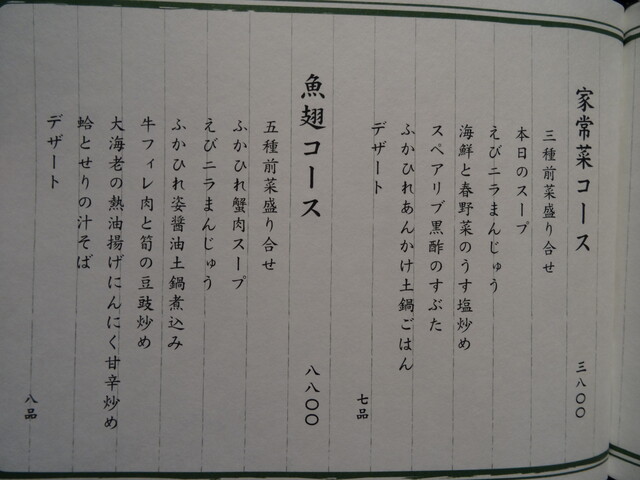 家常菜コース 三八〇〇
三種前菜盛り合せ
本日のスープ
えびニラまんじゅう
海鮮と春野菜のうす塩炒め
スペアリブ黒酢のすぶた
ふかひれあんかけ土鍋ごはん
デザート
七品
魚翅コース 八八〇〇
五種前菜盛り合せ
ふかひれ蟹肉スープ
えびニラまんじゅう
ふかひれ姿醤油土鍋煮込み
牛フィレ肉と筍の豆豉炒め
大海老の熱油揚げにんにく甘辛炒め
蛤とせりの汁そば
デザート
八品